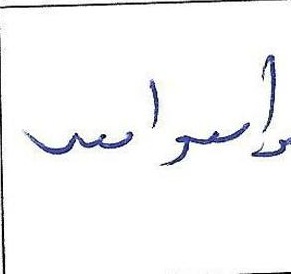 وأسواس